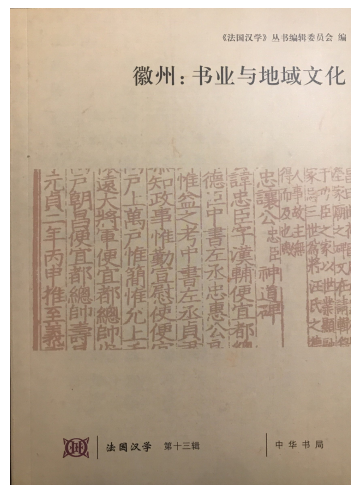 《法国汉学》丛书编辑委员会 编
徽州：书业与地域文化
忠讓公忠臣神道碑
諱忠臣字漢輔便宜都
中書左丞忠惠公
惟益之考中書左丞貞
知政事惟勤宣慰使便
戶上萬戶惟簡惟允上
遠大將軍便宜都總帥
戶朝昌便宜都總帥壽
元貞二年丙申推至義
法国汉学 第十三辑
中华书局